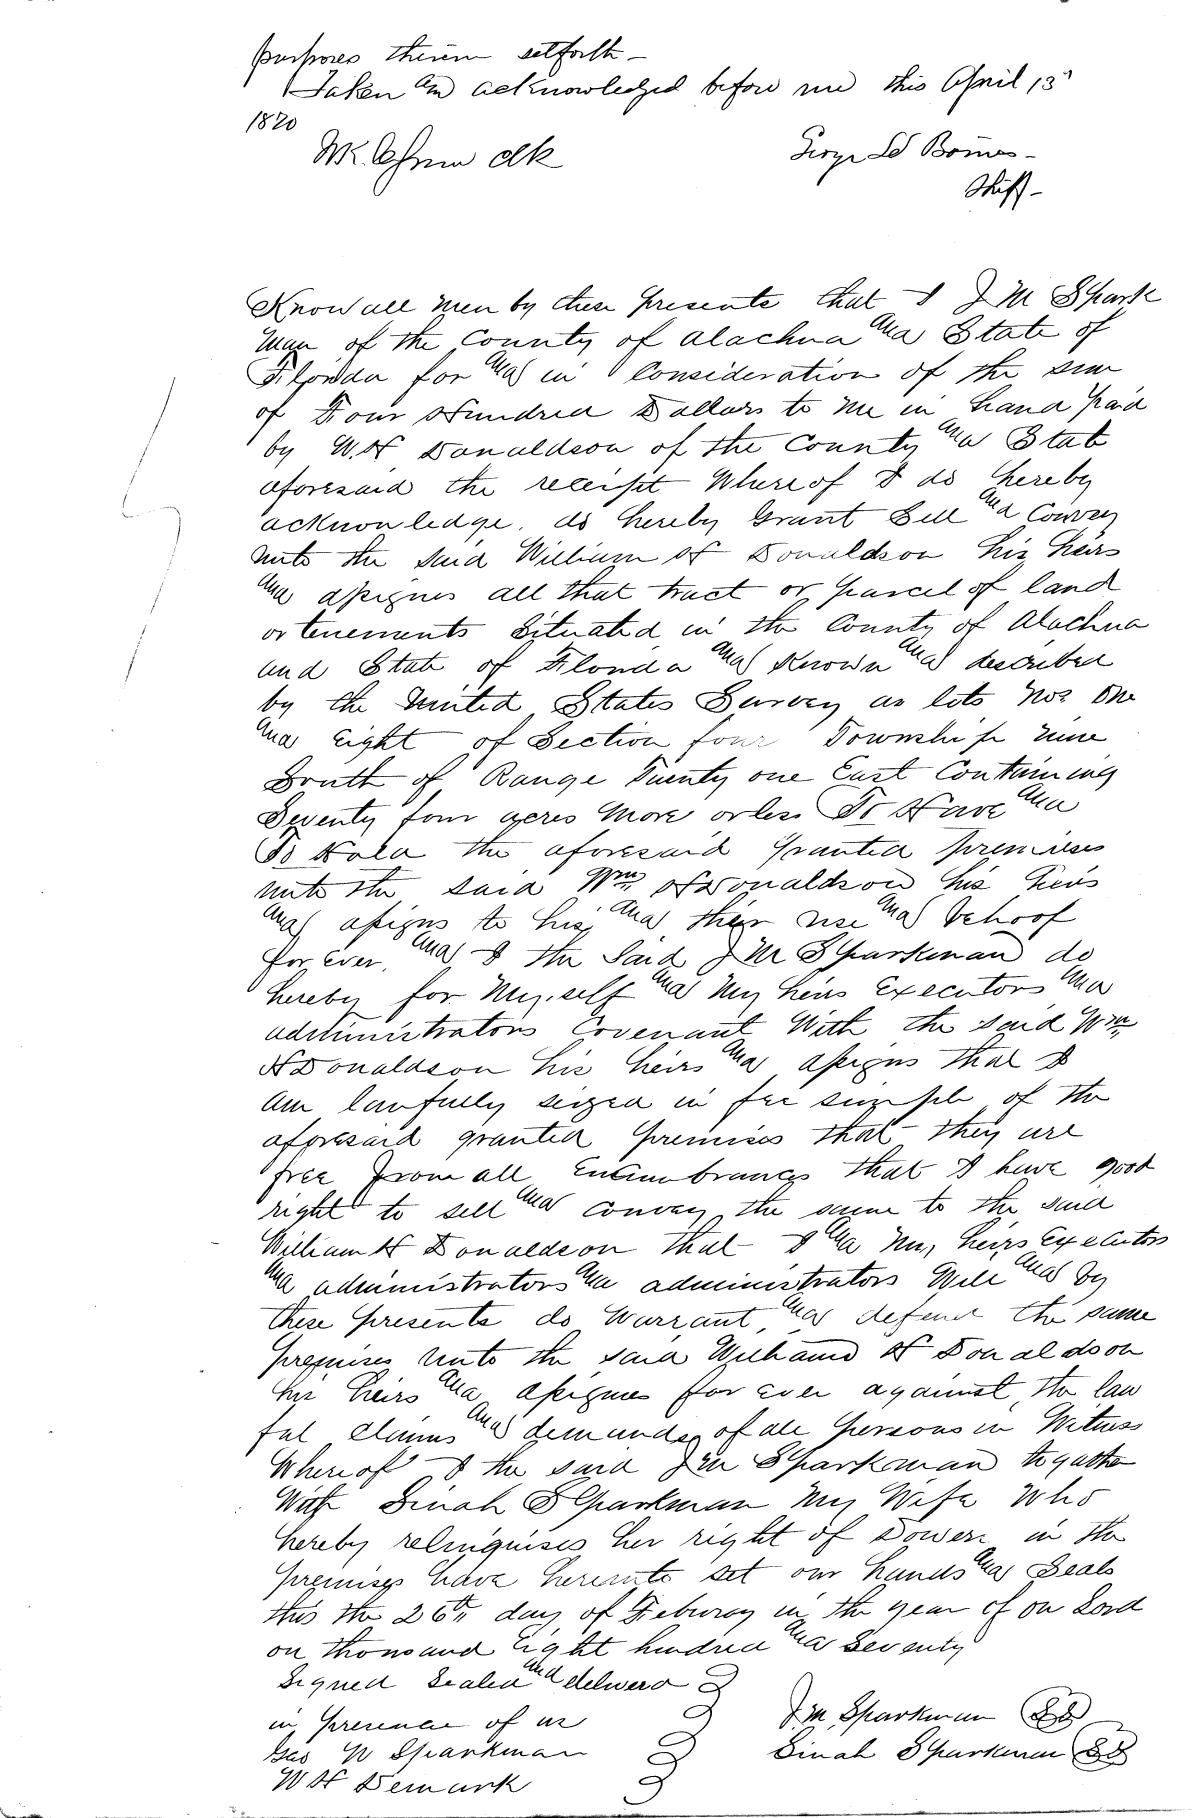 purposes therein setforth –
Taken and acknowledged before me this April 13th
1870
clk
Shiff –
Know all men by these presents that I J M Spark
man of the County of Alachua and State of
Florida for and in Consideration of the sum
of Four Hundred Dollars to me in hand paid
by W. H Donaldson of the County and State
aforesaid the receipt Whereof I do hereby
acknowledge. do hereby Grant Sell and Convey
unto the said William H Donaldson his heirs
and assignes all that tract or parcel of land
or tenements Situated in the County of Alachua
and State of Florida and Known and described
by the United States Survey as lots nos One
and Eight of Section four Township nine
South of Range Twenty one East Containing
Seventy four acres More or less To Have and
To Hold the aforesaid granted premises
unto the said Wm H Donaldson his heirs
and assigns to his and their use and behoof
for ever, and I the Said J M Sparkman do
hereby for My self and My heirs Executors and
administrators Covenant With the said Wm
H Donaldson his heirs and assigns that I
am lawfully seized in fee simple of the
aforesaid granted premises that they are
free from all Encumbrances that I have good
right to sell and convey the same to the said
William H Donaldson that I and My heirs Executors
and administrators and administrators Will and by
these presents do Warrant and defend the same
premises Unto the said William H Donaldson
his heirs and assignes for ever against the law
ful claims and demands of all persons in Witness
Whereof I the said J M Sparkman togather
With Sinah Sparkman My Wife Who
hereby relinquises her right of Dower in the
premises have hereunto set our hands and Seals
this the 26th day of Feburay in the year of our Lord
on thousand Eight hundred and Seventy
Signed Sealed and deliverd
in presence of us J. M. Sparkman LS
Geo W Sparkman Sinah Sparkman LS
W H Demark